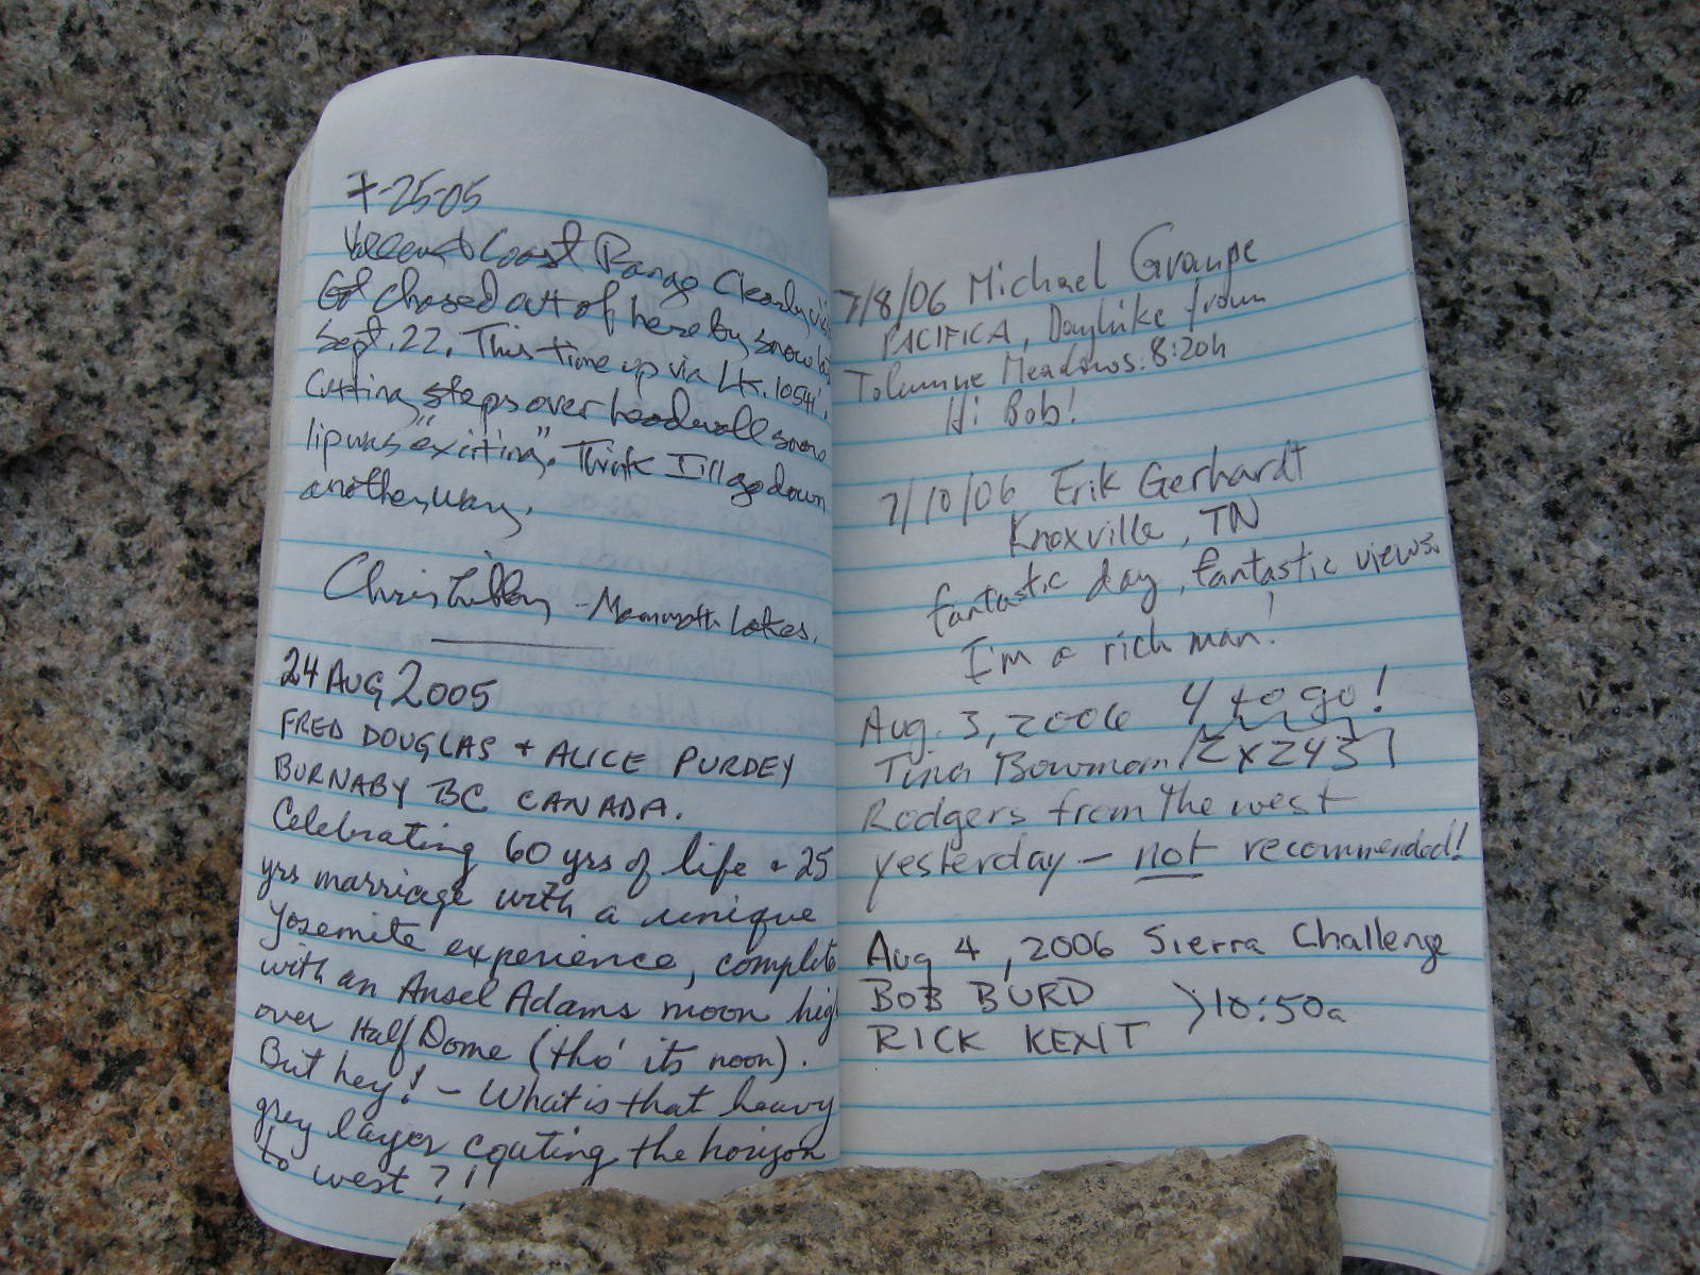 7-25-05
Coast Range Clearly
Got chased out of here by snow
Sept. 22. This time up via Lk. 10541'.
Cutting steps over headwall snow
lip was "exciting". Think I'll go down
another way.
Chris Libby - Mammoth Lakes.
24 AUG 2005
FRED DOUGLAS + ALICE PURDEY
BURNABY BC CANADA.
Celebrating 60 yrs of life + 25
yrs marriage with a unique
Yosemite experience, complete
with an Ansel Adams moon high
over Half Dome (tho' its noon).
But hey! - What is that heavy
grey layer coating the horizon
to west?!!
7/8/06 Michael Graupe
PACIFICA, Dayhike from
Tolumne Meadows. 8:20h
Hi Bob!
7/10/06 Erik Gerhardt
Knoxville, TN
fantastic day, fantastic views.
I'm a rich man!
Aug. 3, 2006 4 to go!
Tina Bowman 2 x 243
Rodgers from the west
yesterday – not recommended!
Aug 4, 2006 Sierra Challenge
BOB BURD
10:50a
RICK KENT